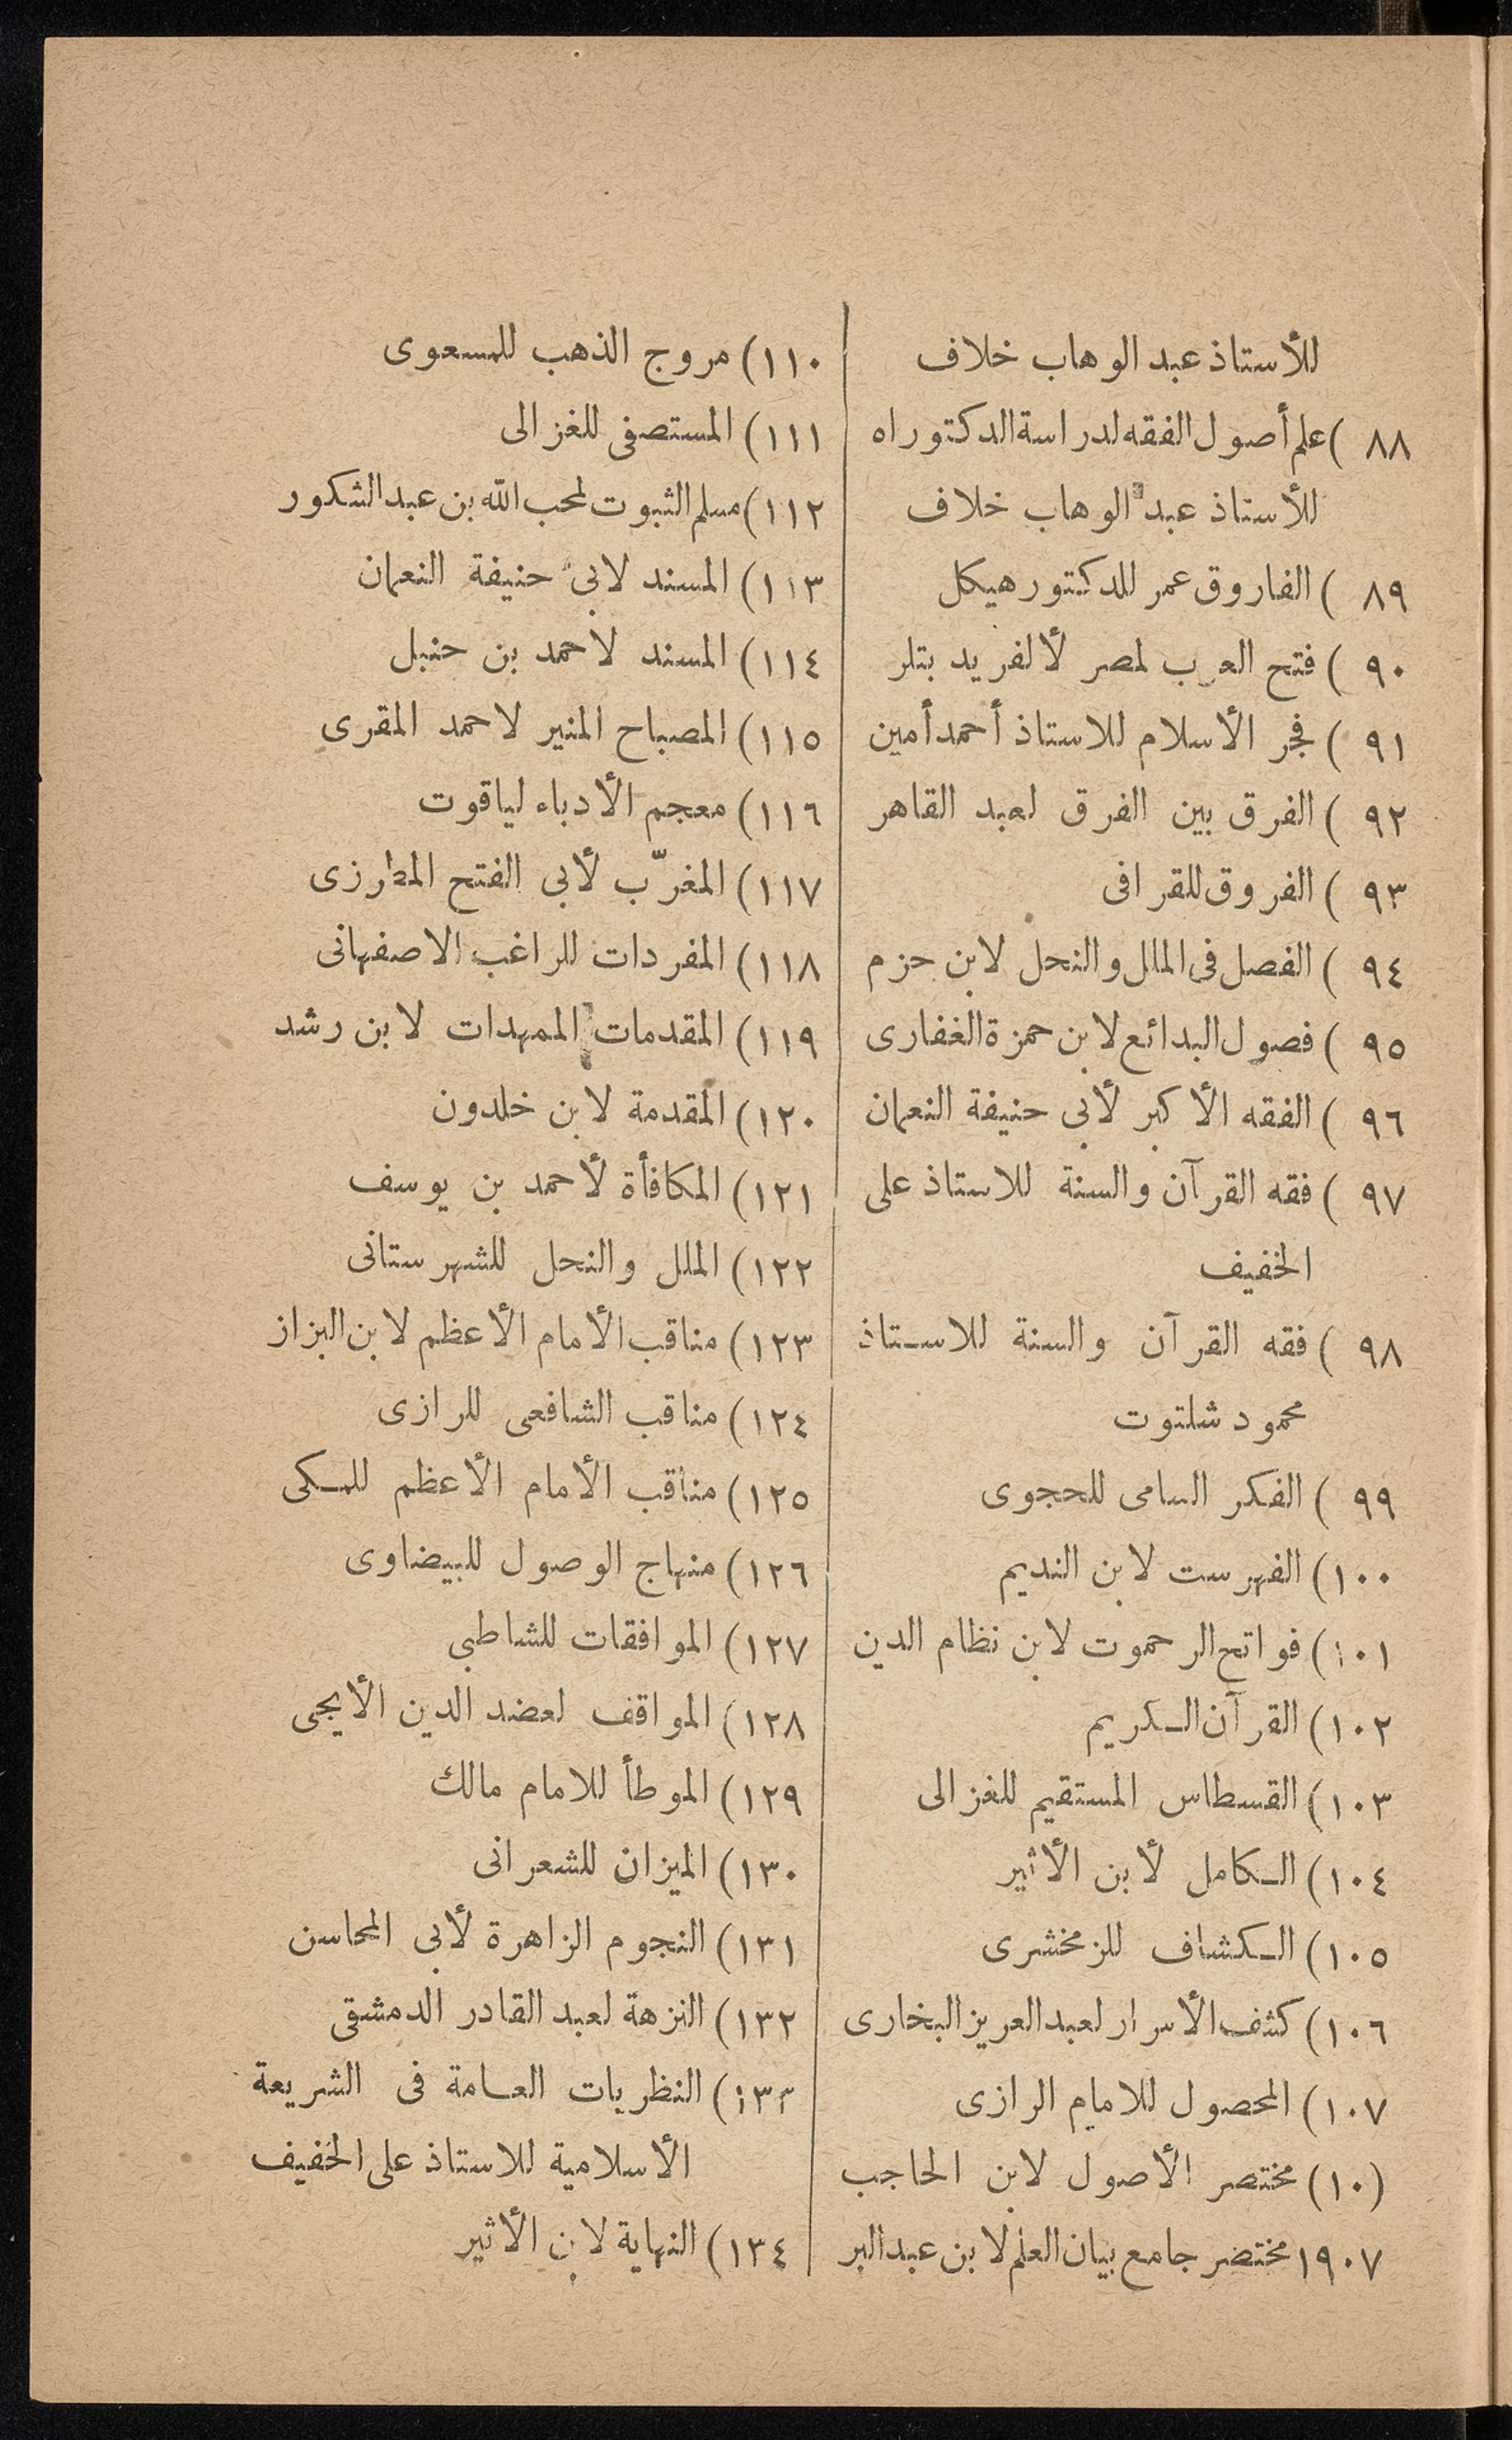 للأستاذ عبد الوهاب خلاف
٨٨ ) علم أصول الفقه لدراسة الدكتوراه
للأستاذ عبد الوهاب خلاف
٨٩ ) الفاروق عمر للدكتور هيكل
٩٠ ) فتح العرب لمصر لألفريد بتلر
٩١ ) فجر الأسلام للاستاذ أحمد أمين
٩٢ ) الفرق بين الفرق لعبد القاهر
٩٣ ) الفروق للقرافى
٩٤ ) الفصل فى الملل والنحل لابن حزم
٩٥ ) فصول البدائع لابن حمزة الغفارى
٩٦ ) الفقه الأكبر لأبى حنيفة النعمان
٩٧ ) فقه القرآن والسنة للاستاذ على
الخفيف
٩٨ ) فقه القرآن والسنة للاستاذ
محمود شلتوت
٩٩ ) الفكر السامى للحجوى
١٠٠) الفهرست لابن النديم
١٠١) فواتح الرحموت لابن نظام الدين
١٠٢) القرآن الكريم
١٠٣) القسطاس المستقيم للغزالى
١٠٤) الكامل لأبن الأثير
١٠٥) الكشاف للزمخشرى
١٠٦) كشف الأسرار لعبد العريز البخارى
١٠٧) المحصول للامام الرازى
(١٠) مختصر الأصول لابن الحاجب
١٩٠٧ مختصر جامع بيان العلم لابن عبد البر
١١٠) مروج الذهب للمسعوى
١١١) المستصفى للغزالى
١١٢) مسلم الثبوت لمحب الله بن عبد الشكور
١١٣) المسند لابى حنيفة النعمان
١١٤) المسند لاحمد بن حنبل
١١٥) المصباح المنير لاحمد المقرى
١١٦) معجم الأدباء لياقوت
١١٧) المغرّب لأبى الفتح المطارزى
١١٨) المفردات للراغب الاصفهانى
١١٩) المقدمات الممهدات لابن رشد
١٢٠) المقدمة لابن خلدون
١٢١) المكافأة لأحمد بن يوسف
١٢٢) الملل والنحل للشهرستانى
١٢٣) مناقب الأمام الأعظم لابن البزاز
١٢٤) مناقب الشافعى للرازى
١٢٥) مناقب الأمام الأعظم للمكى
١٢٦) منهاج الوصول للبيضاوى
١٢٧) الموافقات للشاطبى
١٢٨) المواقف لعضد الدين الأيجى
١٢٩) الموطأ للامام مالك
١٣٠) الميزان للشعرانى
١٣١) النجوم الزاهرة لأبى المحاسن
١٣٢) النزهة لعبد القادر الدمشقى
١٣٣) النظريات العامة فى الشريعة
الأسلامية للاستاذ على الخفيف
١٣٤) النهاية لابن الأثير